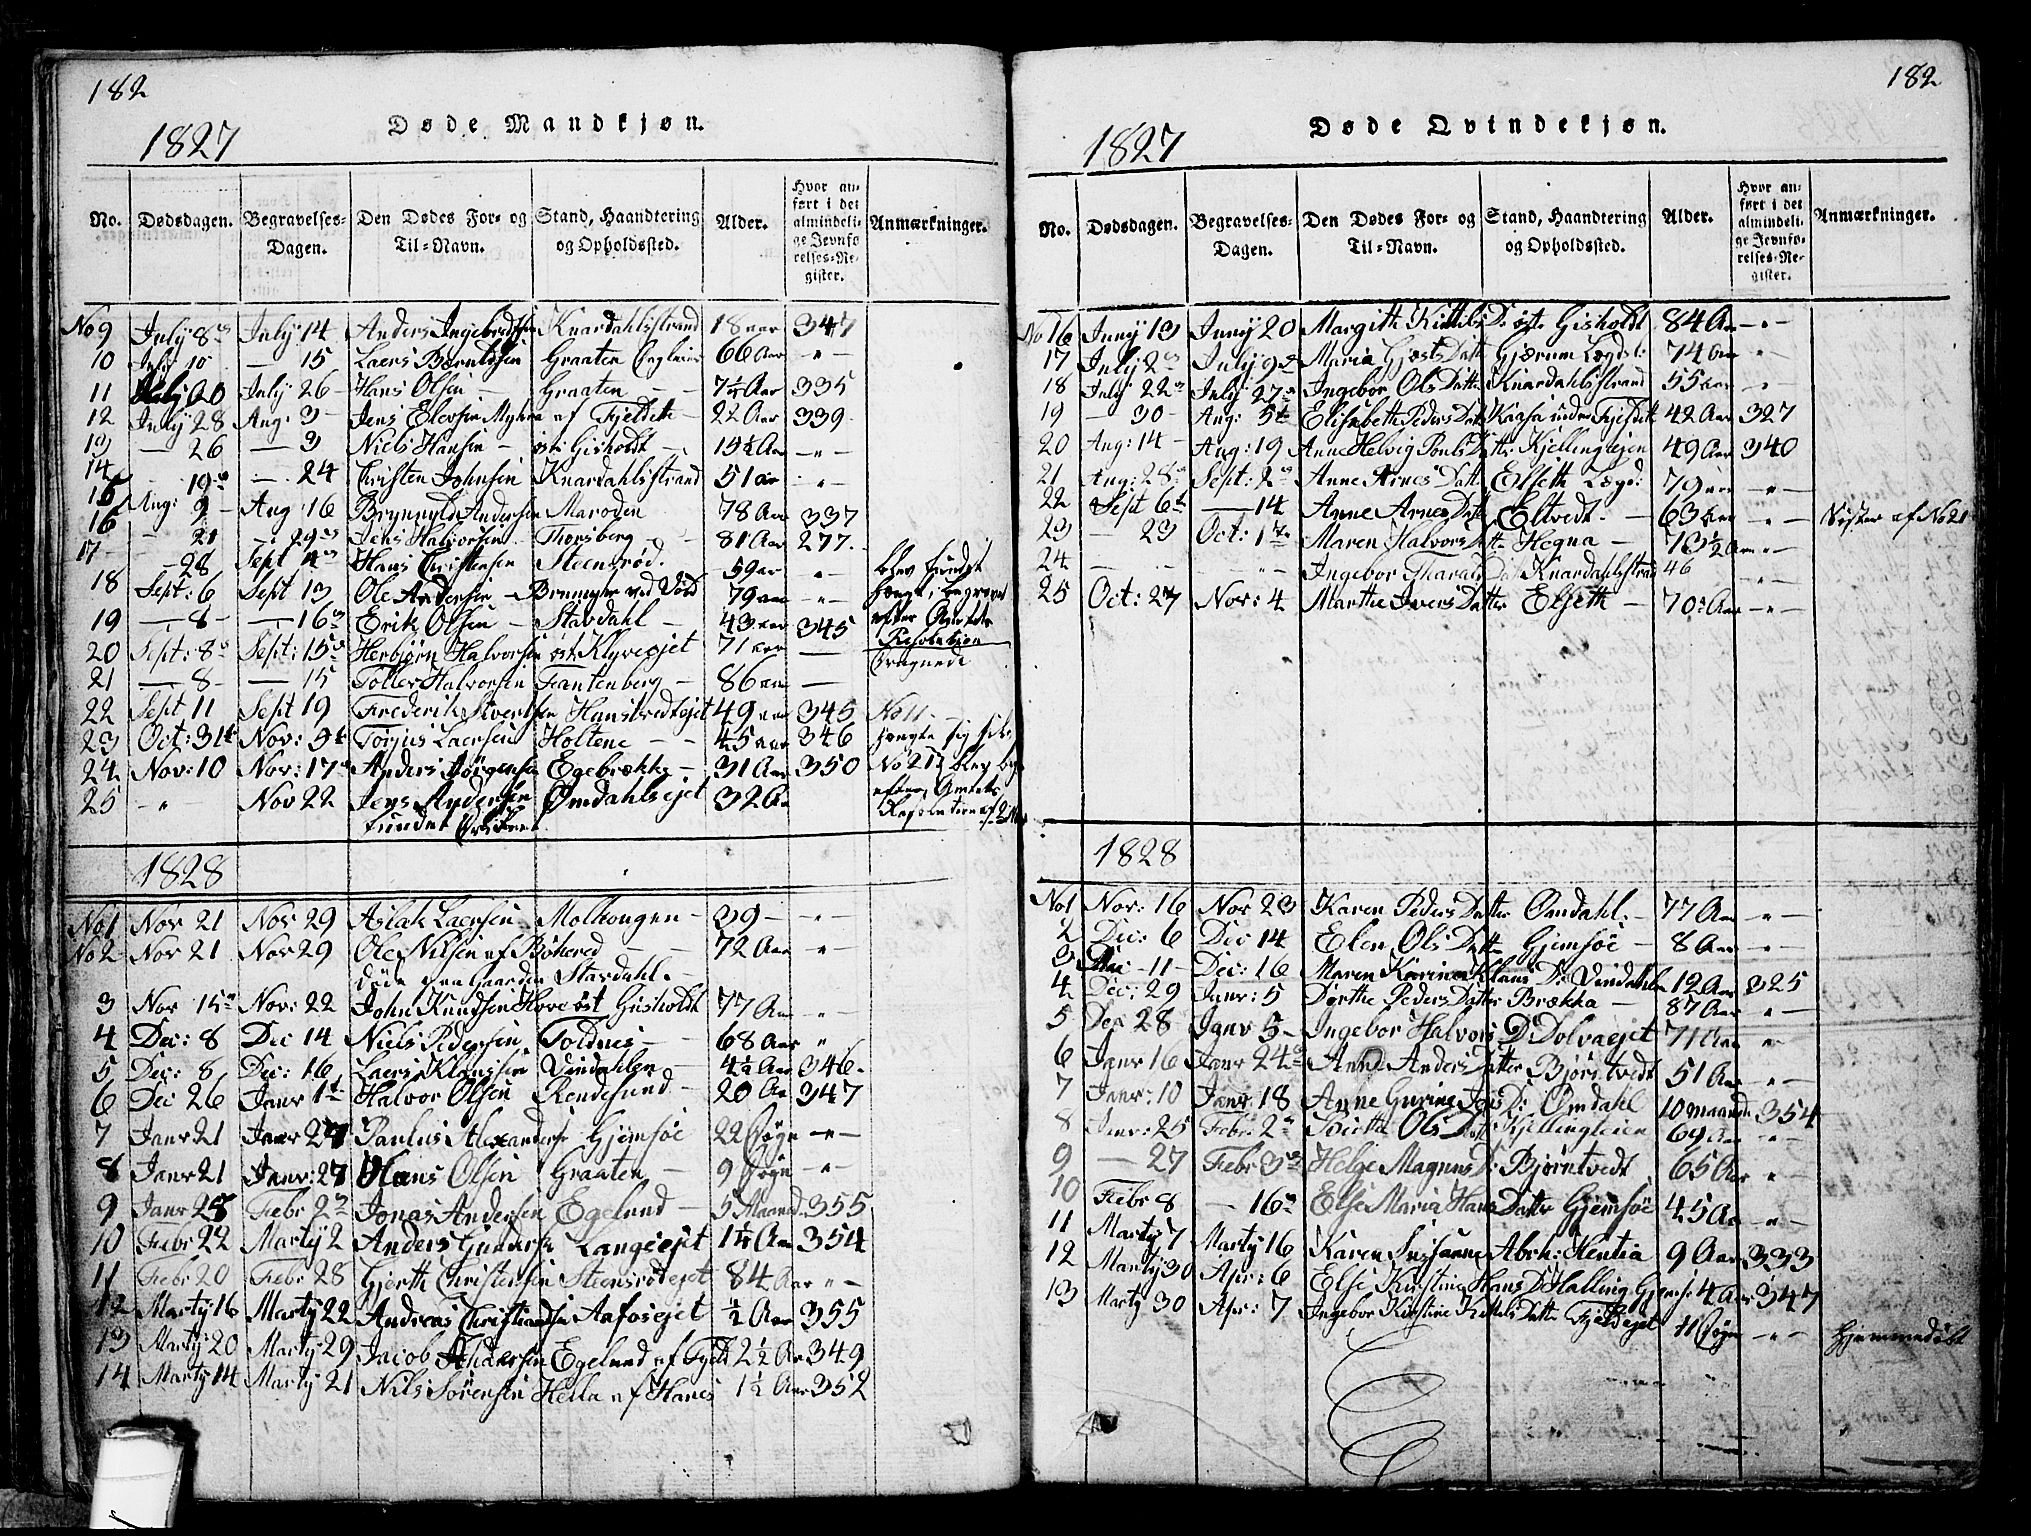 182
1827
Døde Mandkjøn.
No.
Dødsdagen.
Begravelses-Dagen.
Den Dødes For- og Til-Navn.
Stand, Haandtering og Opholdssted.
Alder.
Hvor anført i det almindelige Jevnførelses-Register.
Anmærkninger.
No 9 July 8de July 14 Anders Ingebretsen Knardahlsstrand 18 aar 347
10 July 10 — 15 Laers Berntsen Graaten 66 Aar — " —
11 July 20 July 26 Hans Olsen — Graaten — 7½ Aar 335
12 July 28 Aug: 3 Jens Elevsen af Fjeldet 22 Aar 339
13 — 26 — 3 Niels Hansen — øst: Gisholdt — 1 Aar — " —
14 — 19 — 24 Christen Johnsen Knardahlsstrand 51 aar — " —
15 Aug: 9 Aug 16 Brynnyld Andersen Maroden 78 Aar 337
16 — 21 — 29 Jens Halvorsen Thorsberg 81 Aar 277
17 — 28 Sept 4 Hans Christensen Steensrød 59 ar — " — blev fundet
18 Sept: 6 Sept 13 Ole Andersen — ved Vold 79 aar — " — hængt, begravet
19 — 8 — 16 Erik Olsen — Stavdahl — 43 aar 345 efter Amtets Resolution
20 Sept: 8 Sept: 15 Herbjørn Halvorsen øst Klyveejet 71 aar —
21 — 8 — — 15 Tollef Halvorsen Fantenberg — 86 aar —
22 Sept 11 Sept 19 Frederik Sivertsen Hansbredtejet 49 aar 345 No 11
23 Oct: 31te Nov: 5te Torjus Laersen Holtene — 45 aar 346 hængte sig selv
24 Nov: 10 Nov: 17 Anders Jørgensen Egebrække — 31 Aar 350 No 21 blev
25 — " Nov 22 Jens Andersen Omdahlsejet 32 Aar efter Amtets
funden Resolution af 2 Nov
1828
No 1 Nov 21 Nov 29 Aslak Laersen Molkongen — 39 — "
No 2 Nov 21 Nov 29 Ole Nilsen af Bøhered 72 Aar "
døde paa Gaarden Stavdahl —
3 Nov 15 Nov: 22 John Knudsen Hove øst Gisholdt 77 Aar "
4 Dec: 8 Dec 14 Niels Pedersen Foldnes — 68 Aar "
5 Dec: 8 Dec: 16 Laers Klausen Vindahlen 4½ Aar 346
6 Dec 26 Janr 1t Halvor Olsen Rendesund — 20 Aar 347
7 Janr 21 Janr 27 Paulus Alexandersen Gjemsøe 22 Døgn — " —
8 Janr 21 Janr: 27 Hans Olsen Graaten — 9 Døgn — " —
9 Janr 25 Febr 2 Jonas Andersen Egelund — 5 Maaned. 355
10 Febr 22 Marty 2 Anders Gundersen Langeejet 1½ Aar 354
11 Febr 20 Febr 28 Gjerth Christensen Steensrødejet 84 Aar — " —
12 Marty 16 Marty 22 Andreas Christiansen Aafosejet ½ Aar 355
13 Marty 20 Marty 29 Jacob Andersen Egelund af Fjeld 2½ Aar 349
14 Marty 14 Marty 21 Nils Sørensen Hella af Hanes 1½ Aar 352
182
1827
Døde Qvindekjøn.
No.
Dødsdagen.
Begravelses-Dagen.
Den Dødes For- og Til-Navn.
Stand, Haandtering og Opholdssted.
Alder.
Hvor anført i det almindelige Jevnførelses-Register.
Anmærkninger.
No 16 Juny 13 Juny 20 Margith Kittels D: øst: Gisholdt 84 Aar — " —
17 July 2 July 9 Maria Gjests Datt Gjerum Lægds: 74 Aar — " —
18 July 22 July 27 Ingebor Ols Datter Knardahlsstrand 55 aar — " —
19 — 30 — Aug: 5te Elisabeth Peders Datt Kaasa under Fjeldet 42 Aar 327
20 Aug: 14 — Aug: 19 Anne Helvig Pouls D: Kjellinglejen 49 Aar 340
21 Aug: 28 Sept: 2 Anne Arnes Datt Elseth Lægd: 79 aar — " —
22 Sept 6t — 14 Anne Arnes Datt Eltvedt — 63 aar — " — Søster af No 21
23 — 23 Oct: 1te Maren Halvors D: Hegna — 73½ Aar "
24 Ingebor Datt Knardahlsstrand 46 — " —
25 Oct: 27 Nov: 4 Marthe Ivers Datter Elseth — 70 Aar — " —
1828
No 1 Nov: 16 Nov 23 Karen Peders Datter Omdahl — 77 Aar — " —
2 Dec: 6 Dec 14 Elen Ols Datt Gjemsøe — 8 Aar — " —
3 — 11 — Dec: 16 Maren Karine Klaus D: Vindahlen 12 Aar 325
4 Dec: 29 Janr: 5 Dorthe Peders Datter Brækka — 87 Aar — " —
5 Dec 28 Janr 5 Ingebor Halvors D: Dolvaejet 71 Aar — " —
6 Janr 16 Janr 24 Anne Anders Datter Bjørntvedt 51 Aar — " —
7 Janr: 10 Janr. 18 Anne Gurine Jens D: Omdahl 10 maaneder 354
8 Janr: 25 Febr: 2 Dorthe Ols Datt Kjellingleien 69 Aar — " —
9 — 27 Febr 3 Helge Magnus D: Bjørntvedt 65 Aar "
10 Febr 8 — 16 Else Maria Hans Datter Gjemsøe 45 Aar — " —
11 Marty 7 Marty 16 Karen Susanne Abrh: Mentia 9 Aar 333
12 Marty 30 Apr: 6 Else Kirstine Hans D: Halling Gjems: 4 Aar 347
13 Marty 30 Apr: 7 Ingebor Kirstine Kittels Datter Fjeldejet 11 Døgn — " — Hjemmedøbt